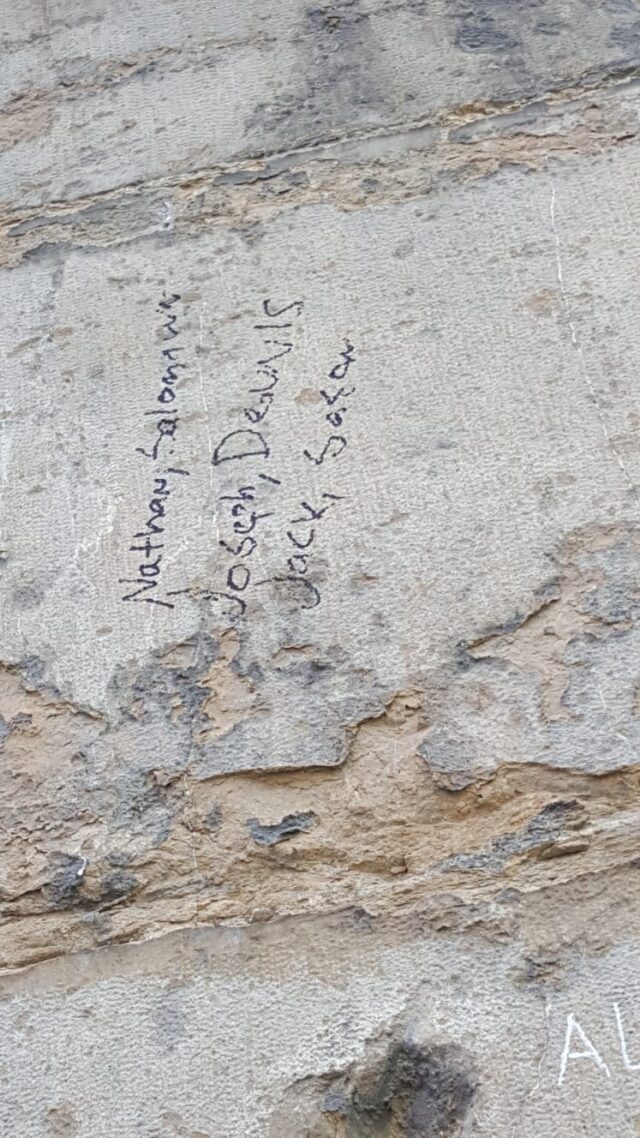 Nathan, Salomawa
Joseph, Dennis
Jack, Sasa
AL